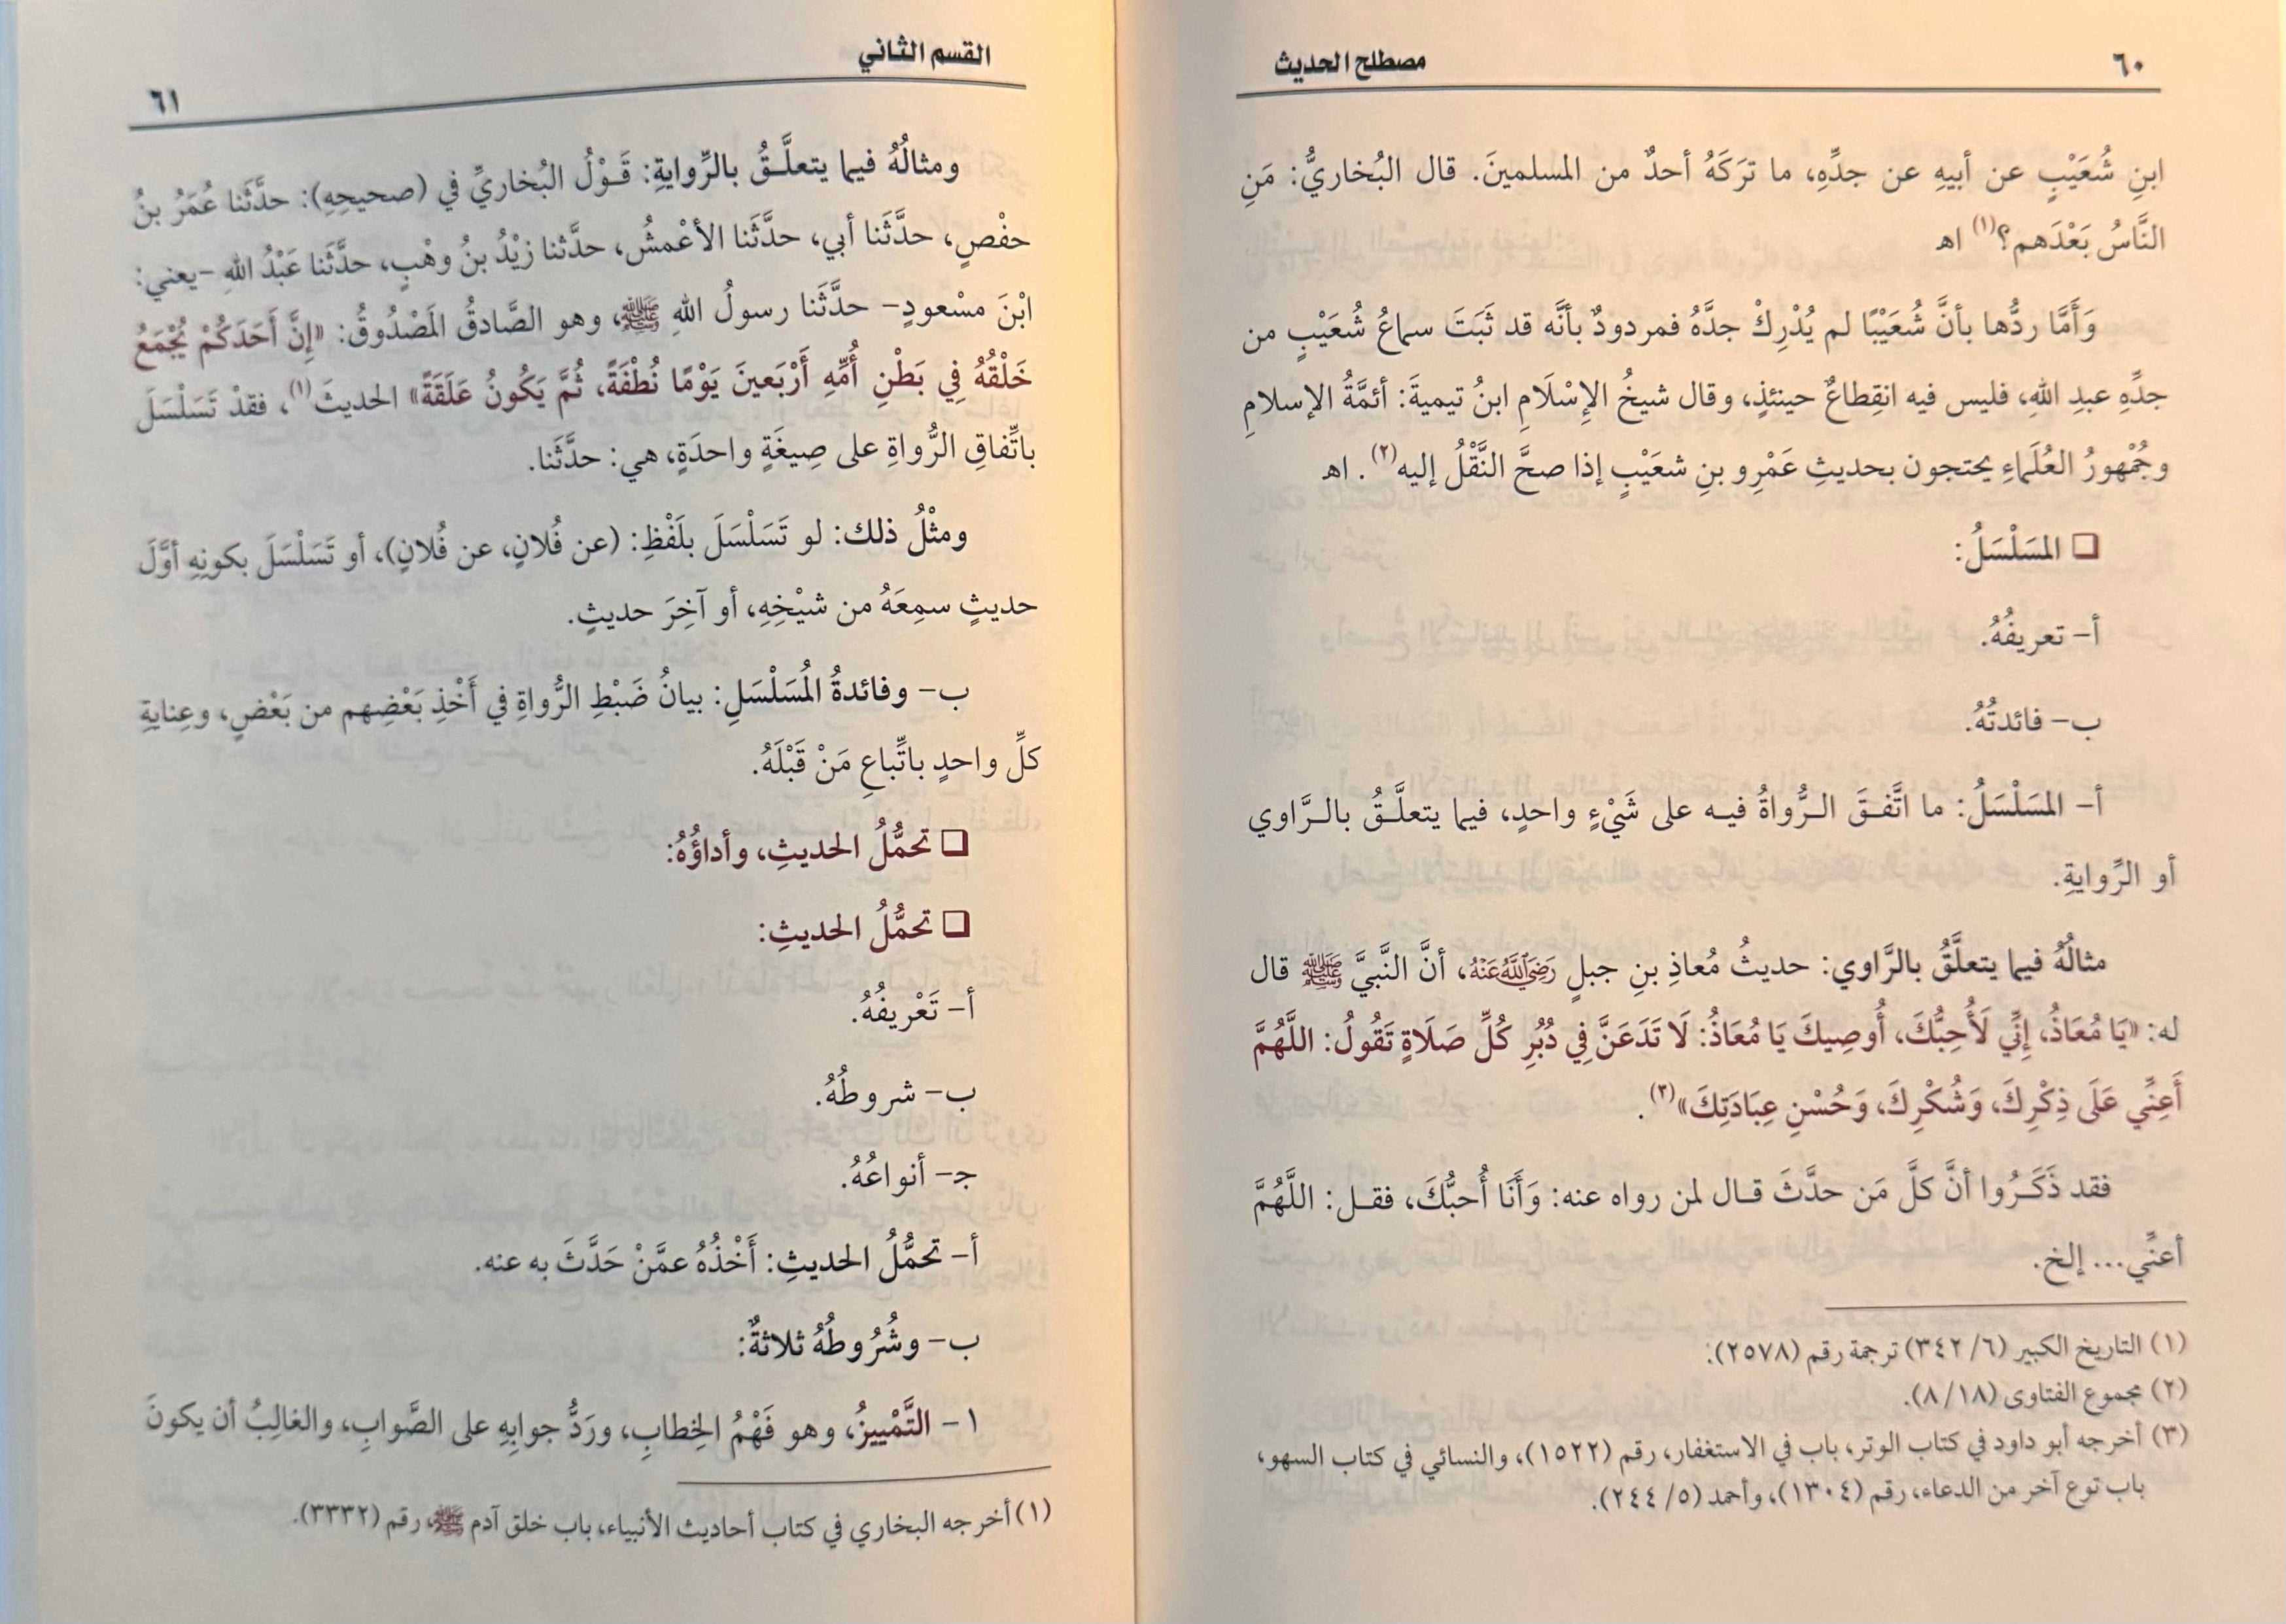 ٦٠ مصطلح الحديث
ابنِ شُعَيْبٍ عن أبيهِ عن جدِّهِ، ما تَرَكَهُ أحدٌ من المسلمينَ. قال البُخاريُّ: مَنِ
النَّاسُ بَعْدَهم؟(١) اهـ
وَأَمَّا ردُّها بأنَّ شُعَيْبًا لم يُدْرِكْ جدَّهُ فمردودٌ بأنَّه قد ثَبَتَ سماعُ شُعَيْبٍ من
جدِّهِ عبدِ اللهِ، فليس فيه انقِطاعٌ حينئذٍ، وقال شيخُ الإِسْلَامِ ابنُ تيميةَ: أئمَّةُ الإسلامِ
وجُمْهورُ العُلَماءِ يحتجون بحديثِ عَمْرِو بنِ شعَيْبٍ إذا صحَّ النَّقْلُ إليه(٢). اهـ
❏ المسَلْسَلُ:
أ- تعريفُهُ.
ب- فائدتُهُ.
أ- المسَلْسَلُ: ما اتَّفـقَ الـرُّواةُ فيـه على شَيْءٍ واحدٍ، فيما يتعلَّـقُ بالـرَّاوي
أو الرِّوايةِ.
مثالُهُ فيما يتعلَّقُ بالرَّاوي: حديثُ مُعاذِ بنِ جبلٍ رَضِيَ اللَّهُ عَنْهُ، أنَّ النَّبيَّ ﷺ قال
له: «يَا مُعَاذُ، إِنِّي لَأُحِبُّكَ، أُوصِيكَ يَا مُعَاذُ: لَا تَدَعَنَّ فِي دُبُرِ كُلِّ صَلَاةٍ تَقُولُ: اللَّهُمَّ
أَعِنِّي عَلَى ذِكْرِكَ، وَشُكْرِكَ، وَحُسْنِ عِبَادَتِكَ»(٣).
فقد ذَكَـرُوا أنَّ كلَّ مَن حدَّثَ قـال لمن رواه عنه: وَأَنَا أُحبُّكَ، فقـل: اللَّهُمَّ
أعنِّي... إلخ.
(١) التاريخ الكبير (٦/ ٣٤٢) ترجمة رقم (٢٥٧٨).
(٢) مجموع الفتاوى (١٨/ ٨).
(٣) أخرجه أبو داود في كتاب الوتر، باب في الاستغفار، رقم (١٥٢٢)، والنسائي في كتاب السهو،
باب توع آخر من الدعاء، رقم (١٣٠٤)، وأحمد (٥/ ٢٤٤).
القسم الثاني ٦١
ومثالُهُ فيما يتعلَّـقُ بالرِّوايةِ: قَـوْلُ البُخاريِّ في (صحيحِهِ): حدَّثَنا عُمَرُ بنُ
حفْصٍ، حدَّثَنا أبي، حدَّثَنا الأعْمشُ، حدَّثنا زيْدُ بنُ وهْبٍ، حدَّثَنا عَبْدُ اللهِ -يعني:
ابْنَ مسْعودٍ- حدَّثَنا رسولُ اللهِ ﷺ، وهو الصَّادقُ المَصْدُوقُ: «إِنَّ أَحَدَكُمْ يُجْمَعُ
خَلْقُهُ فِي بَطْنِ أُمِّهِ أَرْبَعينَ يَوْمًا نُطْفَةً، ثُمَّ يَكُونُ عَلَقَةً» الحديثَ(١)، فقدْ تَسَلْسَلَ
باتِّفاقِ الرُّواةِ على صِيغَةٍ واحدَةٍ، هي: حدَّثَنا.
ومثْلُ ذلك: لو تَسَلْسَلَ بلَفْظِ: (عن فُلانٍ، عن فُلانٍ)، أو تَسَلْسَلَ بكونِهِ أوَّلَ
حديثٍ سمِعَهُ من شيْخِهِ، أو آخِرَ حديثٍ.
ب- وفائدةُ المُسَلْسَلِ: بيانُ ضَبْطِ الرُّواةِ في أَخْذِ بَعْضِهم من بَعْضٍ، وعِنايةِ
كلِّ واحدٍ باتِّباعِ مَنْ قَبْلَهُ.
❏ تحمُّلُ الحديثِ، وأداؤُهُ:
❏ تحمُّلُ الحديثِ:
أ- تَعْريفُهُ.
ب- شروطُهُ.
جـ- أنواعُهُ.
أ- تحمُّلُ الحديثِ: أَخْذُهُ عمَّنْ حَدَّثَ به عنه.
ب- وشُرُوطُهُ ثلاثةٌ:
١- التَّمْييزُ، وهو فَهْمُ الخِطابِ، ورَدُّ جوابِهِ على الصَّوابِ، والغالِبُ أن يكونَ
(١) أخرجه البخاري في كتاب أحاديث الأنبياء، باب خلق آدم ﷺ، رقم (٣٣٣٢).